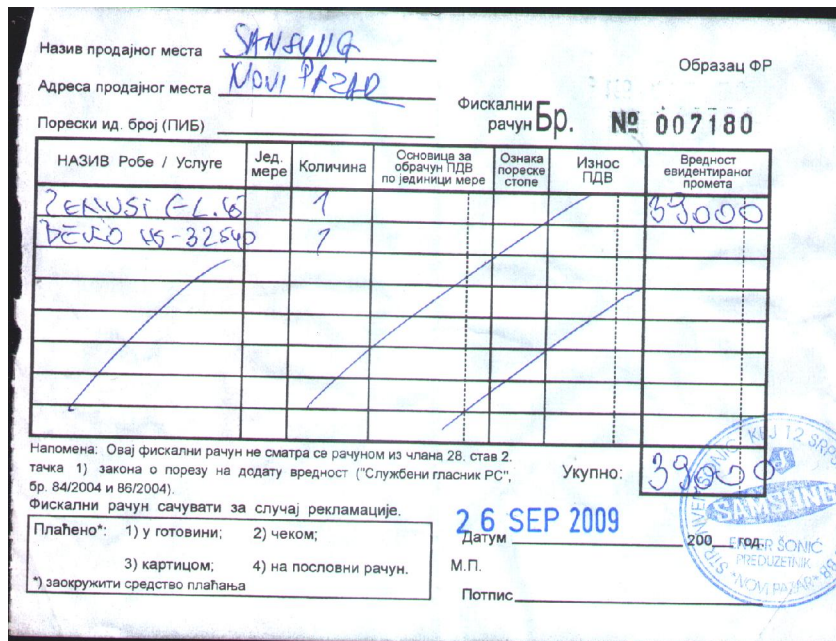 Назив продајног места SAMSUNG
Образац ФР
Адреса продајног места NOVI PAZAR
Фискални рачун Бр. № 007180
Порески ид. број (ПИБ)
НАЗИВ Робе / Услуге Јед. мере Количина Основица за обрачун ПДВ по јединици мере Ознака пореске стопе Износ ПДВ Вредност евидентираног промета
1 39,000
BEKO HS-32540 1
Напомена: Овај фискални рачун не сматра се рачуном из члана 28. став 2.
тачка 1) закона о порезу на додату вредност ("Службени гласник РС",
бр. 84/2004 и 86/2004).
Укупно: 39,000
Фискални рачун сачувати за случај рекламације.
Плаћено*: 1) у готовини; 2) чеком;
3) картицом; 4) на пословни рачун.
*) заокружити средство плаћања
26 SEP 2009
Датум 200 год.
М.П.
Потпис
KEJ 12 SRPS
SAMSUNG
ENVER ŠONIĆ
PREDUZETNIK
NOVI PAZAR